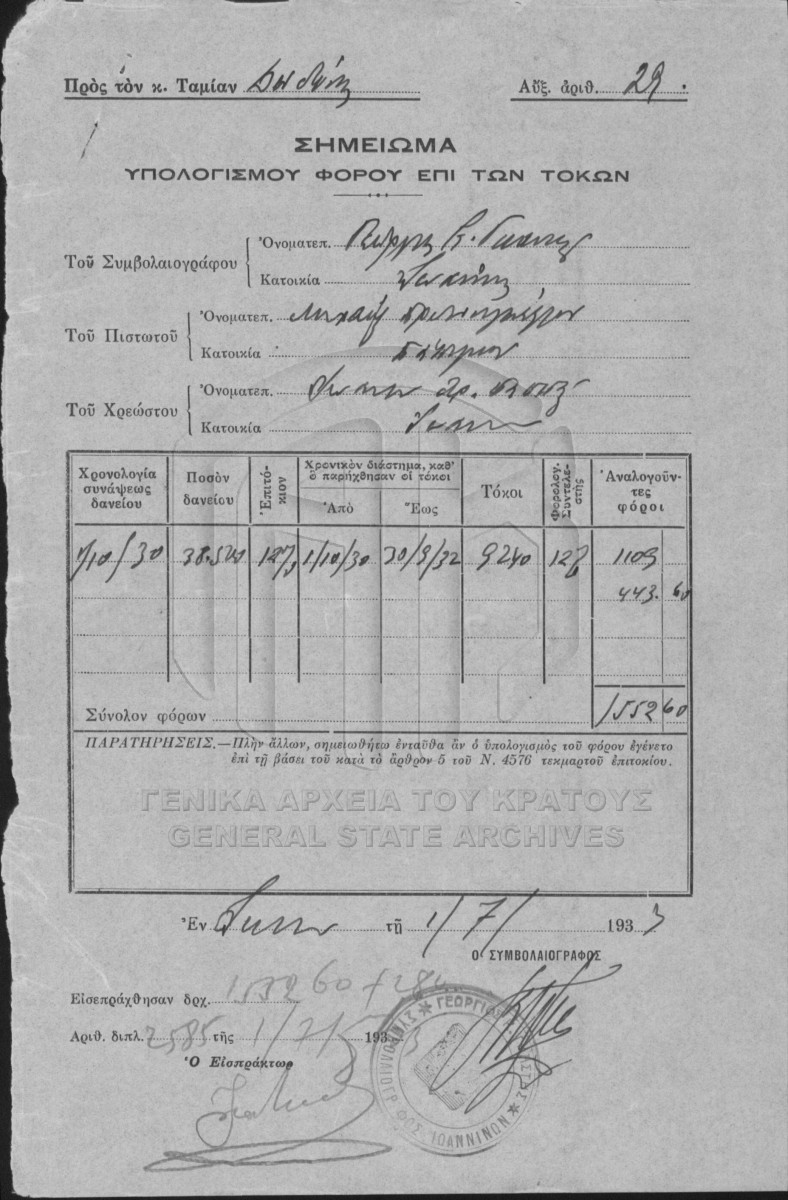 Πρὸς τὸν κ. Ταμίαν Δωδώνης
Αὔξ. ἀριθ. 29.
ΣΗΜΕΙΩΜΑ
ΥΠΟΛΟΓΙΣΜΟΥ ΦΟΡΟΥ ΕΠΙ ΤΩΝ ΤΟΚΩΝ
Τοῦ Συμβολαιογράφου
Ὀνοματεπ.
Κατοικία
Τοῦ Πιστωτοῦ
Ὀνοματεπ. Μιχαὴλ
Κατοικία
Τοῦ Χρεώστου
Ὀνοματεπ.
Κατοικία
Χρονολογία συνάψεως δανείου
Ποσὸν δανείου
Ἐπιτόκιον
Χρονικὸν διάστημα, καθ' ὃ παρήχθησαν οἱ τόκοι
Ἀπὸ
Ἕως
Τόκοι
Φορολογ. Συντελεστής
Ἀναλογοῦντες φόροι
1/10/30 38.500 12% 1/10/30 30/9/32 9240 12% 1109
443. 60
Σύνολον φόρων 1552 60
ΠΑΡΑΤΗΡΗΣΕΙΣ.—Πλὴν ἄλλων, σημειωθήτω ἐνταῦθα ἂν ὁ ὑπολογισμὸς τοῦ φόρου ἐγένετο
ἐπὶ τῇ βάσει τοῦ κατὰ τὸ ἄρθρον 5 τοῦ Ν. 4576 τεκμαρτοῦ ἐπιτοκίου.
ΓΕΝΙΚΑ ΑΡΧΕΙΑ ΤΟΥ ΚΡΑΤΟΥΣ
GENERAL STATE ARCHIVES
Ἐν τῇ 1/7/ 1933
Ο ΣΥΜΒΟΛΑΙΟΓΡΑΦΟΣ
Εἰσεπράχθησαν δρχ. 1552 60
Ἀριθ. διπλ. 2585 τῆς 1/7/ 1933
Ὁ Εἰσπράκτωρ
ΓΕΩΡΓΙΟΣ
ΙΩΑΝΝΙΝΩΝ